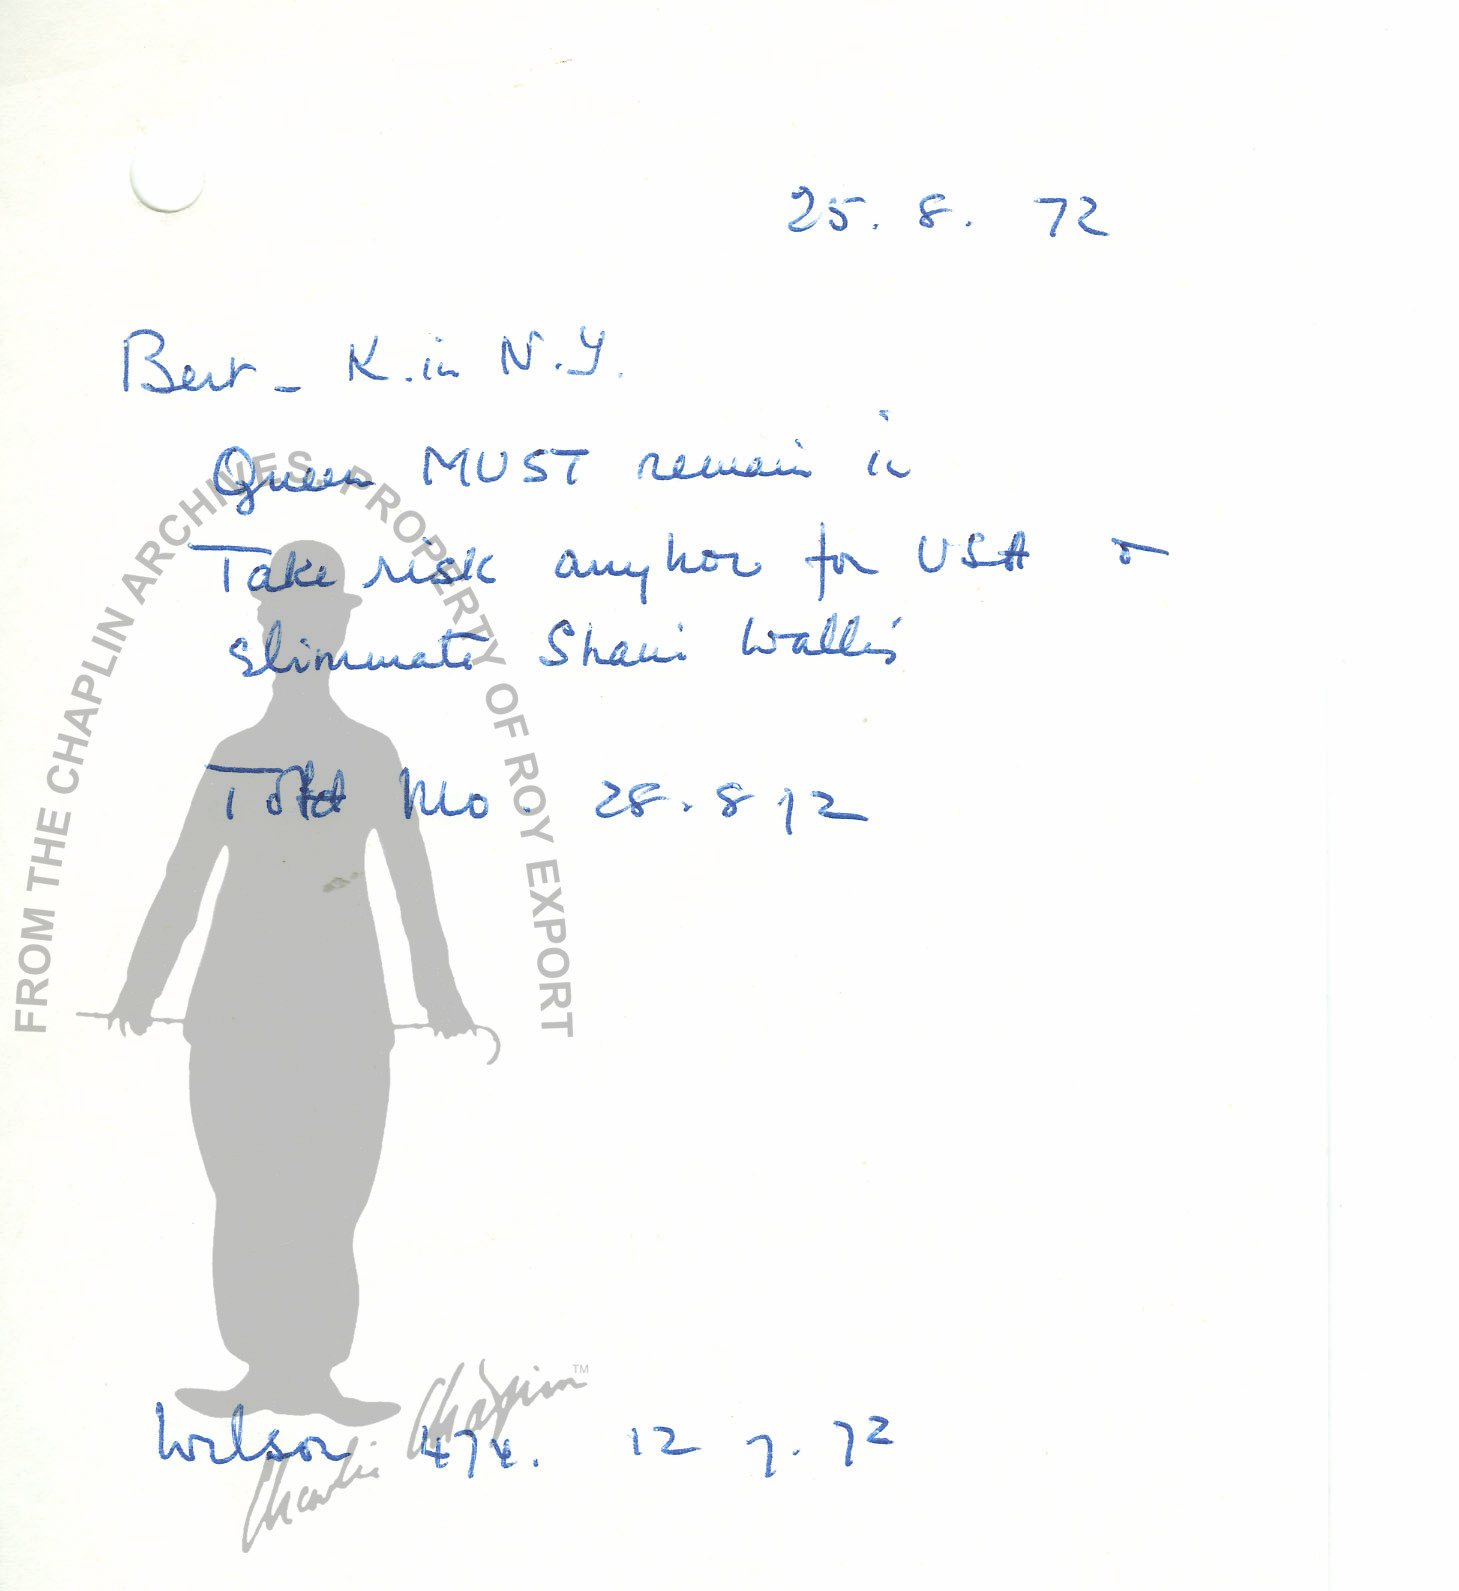 25. 8. 72
Bert - K. in N.Y.
Queen MUST remain in
Take risk anyhow for USA or
Elimmate Shani Wallis
Told Mo. 28.8 72
Wilson 474. 12 7. 72
FROM THE CHAPLIN ARCHIVES, PROPERTY OF ROY EXPORT
Charlie Chaplin TM